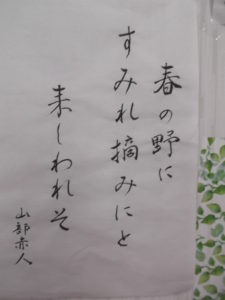 春の野に
すみれ摘みにと
来しわれそ
山部赤人